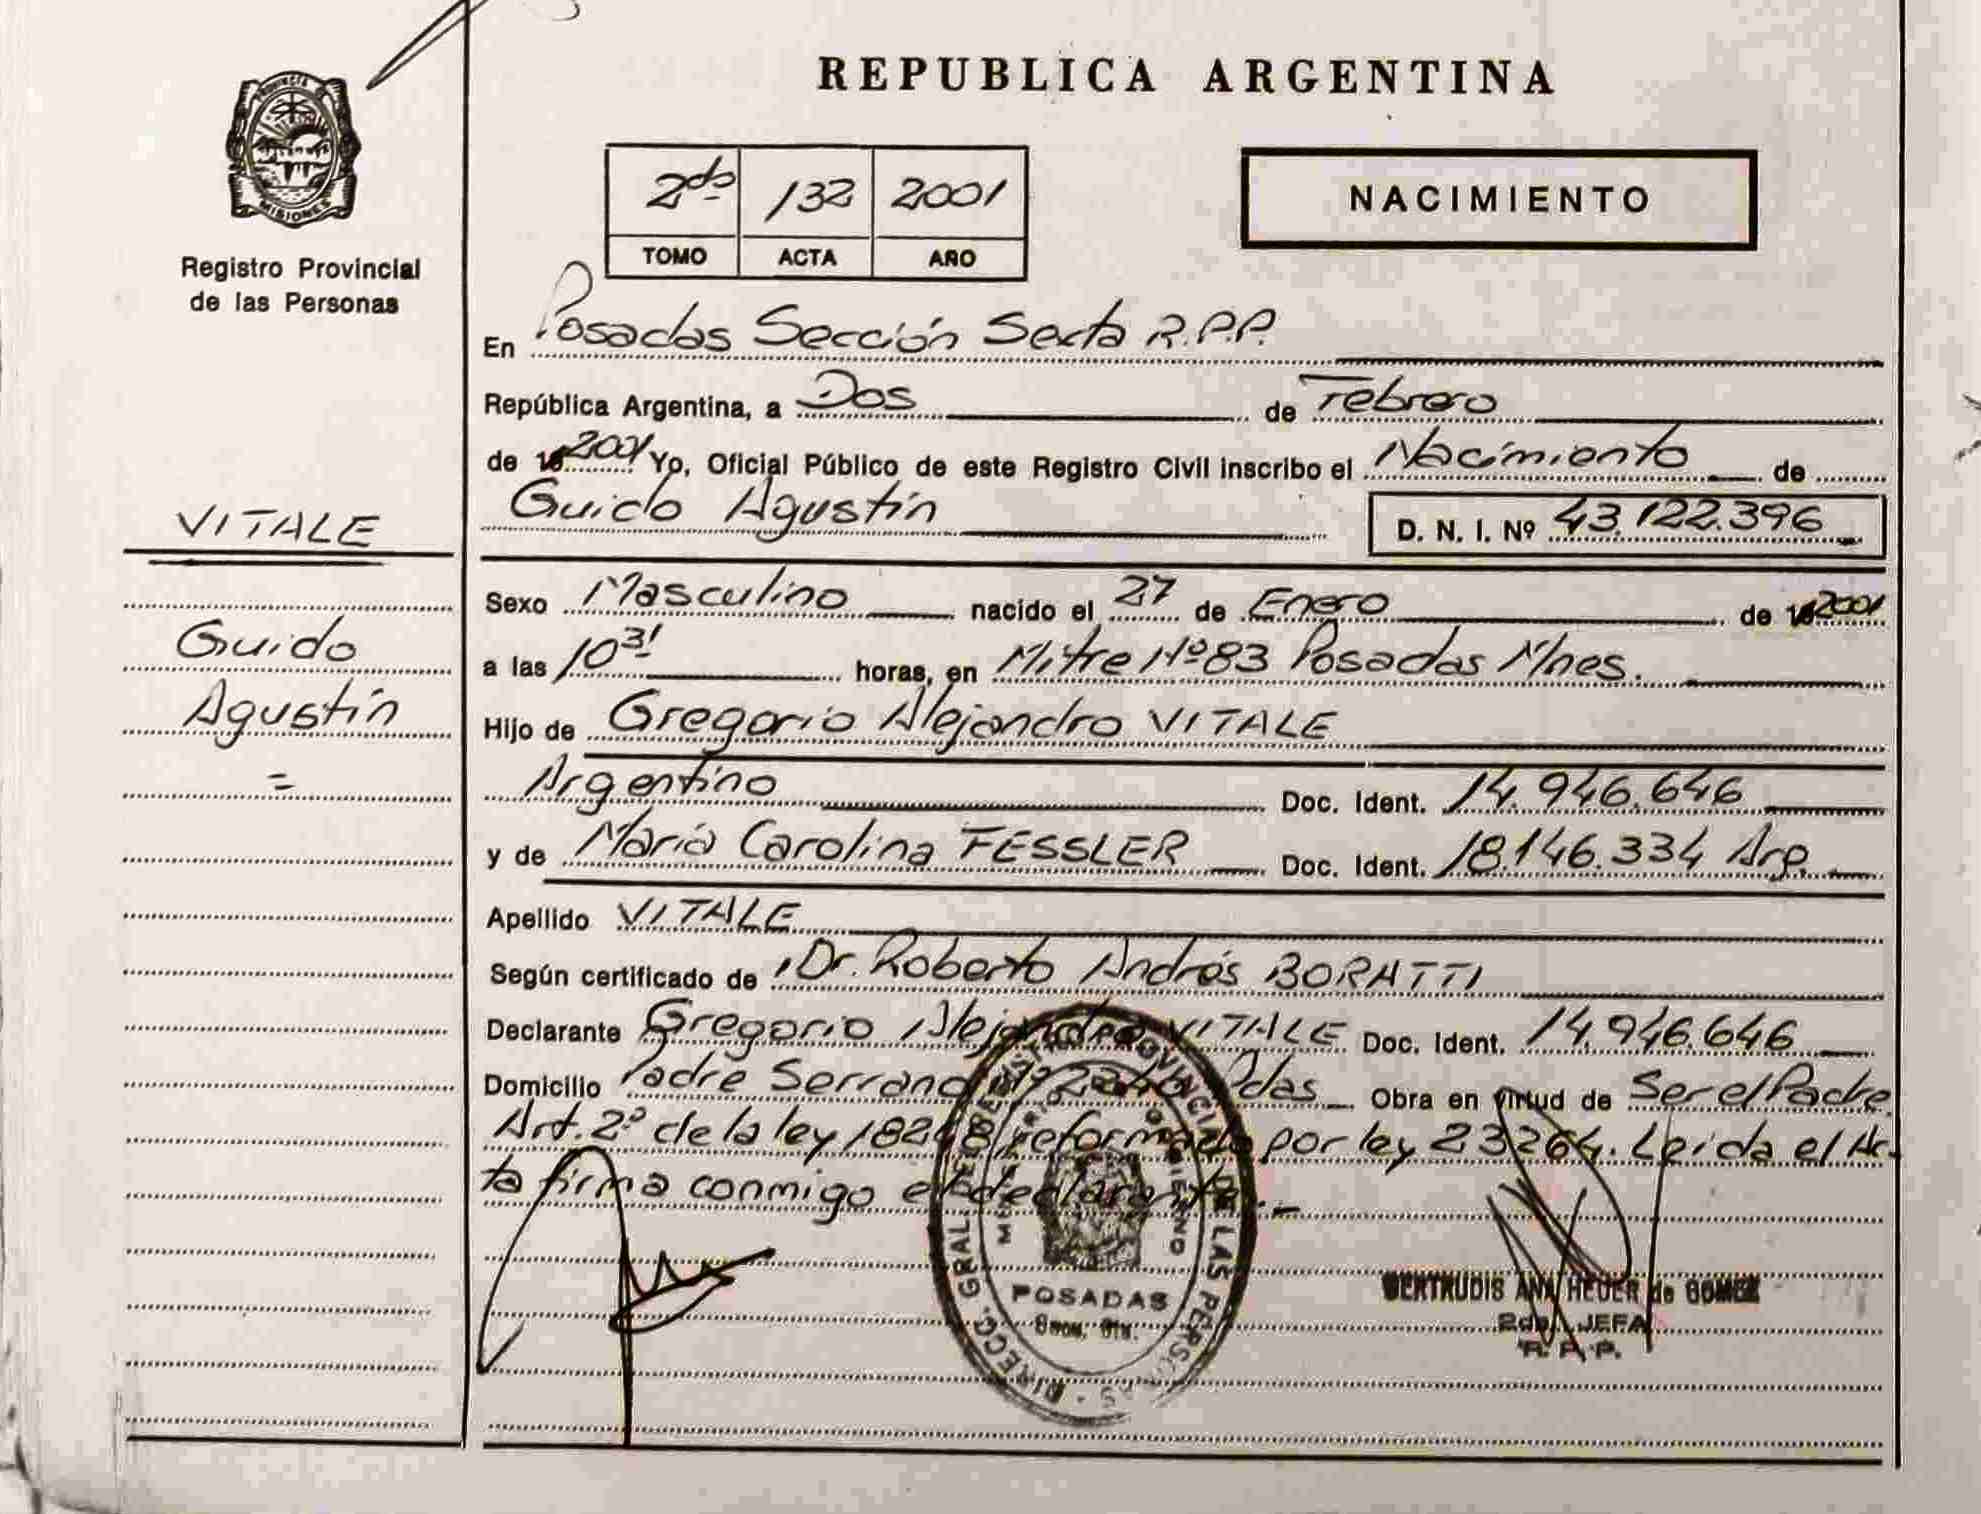 REPUBLICA ARGENTINA
PROVINCIA DE
MISIONES
Registro Provincial
de las Personas
2do 132 2001
TOMO ACTA AÑO
NACIMIENTO
En Posadas Sección Sexta R.P.P.
República Argentina, a Dos de Febrero
de 2001 Yo, Oficial Público de este Registro Civil inscribo el Nacimiento de
Guido Agustín D. N. I. Nº 43.122.396
VITALE
Guido
Agustín
=
Sexo Masculino nacido el 27 de Enero de 2001
a las 10 31 horas, en Mitre Nº 83 Posadas Mnes.
Hijo de Gregorio Alejandro VITALE
Argentino Doc. Ident. 14.946.646
y de María Carolina FESSLER Doc. Ident. 18.146.334 Arg.
Apellido VITALE
Según certificado de Dr. Roberto Andrés BORATTI
Declarante Gregorio Alejandro VITALE Doc. Ident. 14.946.646
Domicilio Padre Serrano Nº Pdas Obra en virtud de Ser el Padre.
Art. 2º de la ley 18248 reformada por ley 23264. Leida el Ac-
ta firma conmigo el declarante.
DIRECC. GRAL. DEL REGISTRO PROVINCIAL DE LAS PERSONAS
MINISTERIO DE GOBIERNO
POSADAS
Secn. 6ta.
GERTRUDIS ANA HEUER de GOMEZ
2da. JEFA
R. P. P.